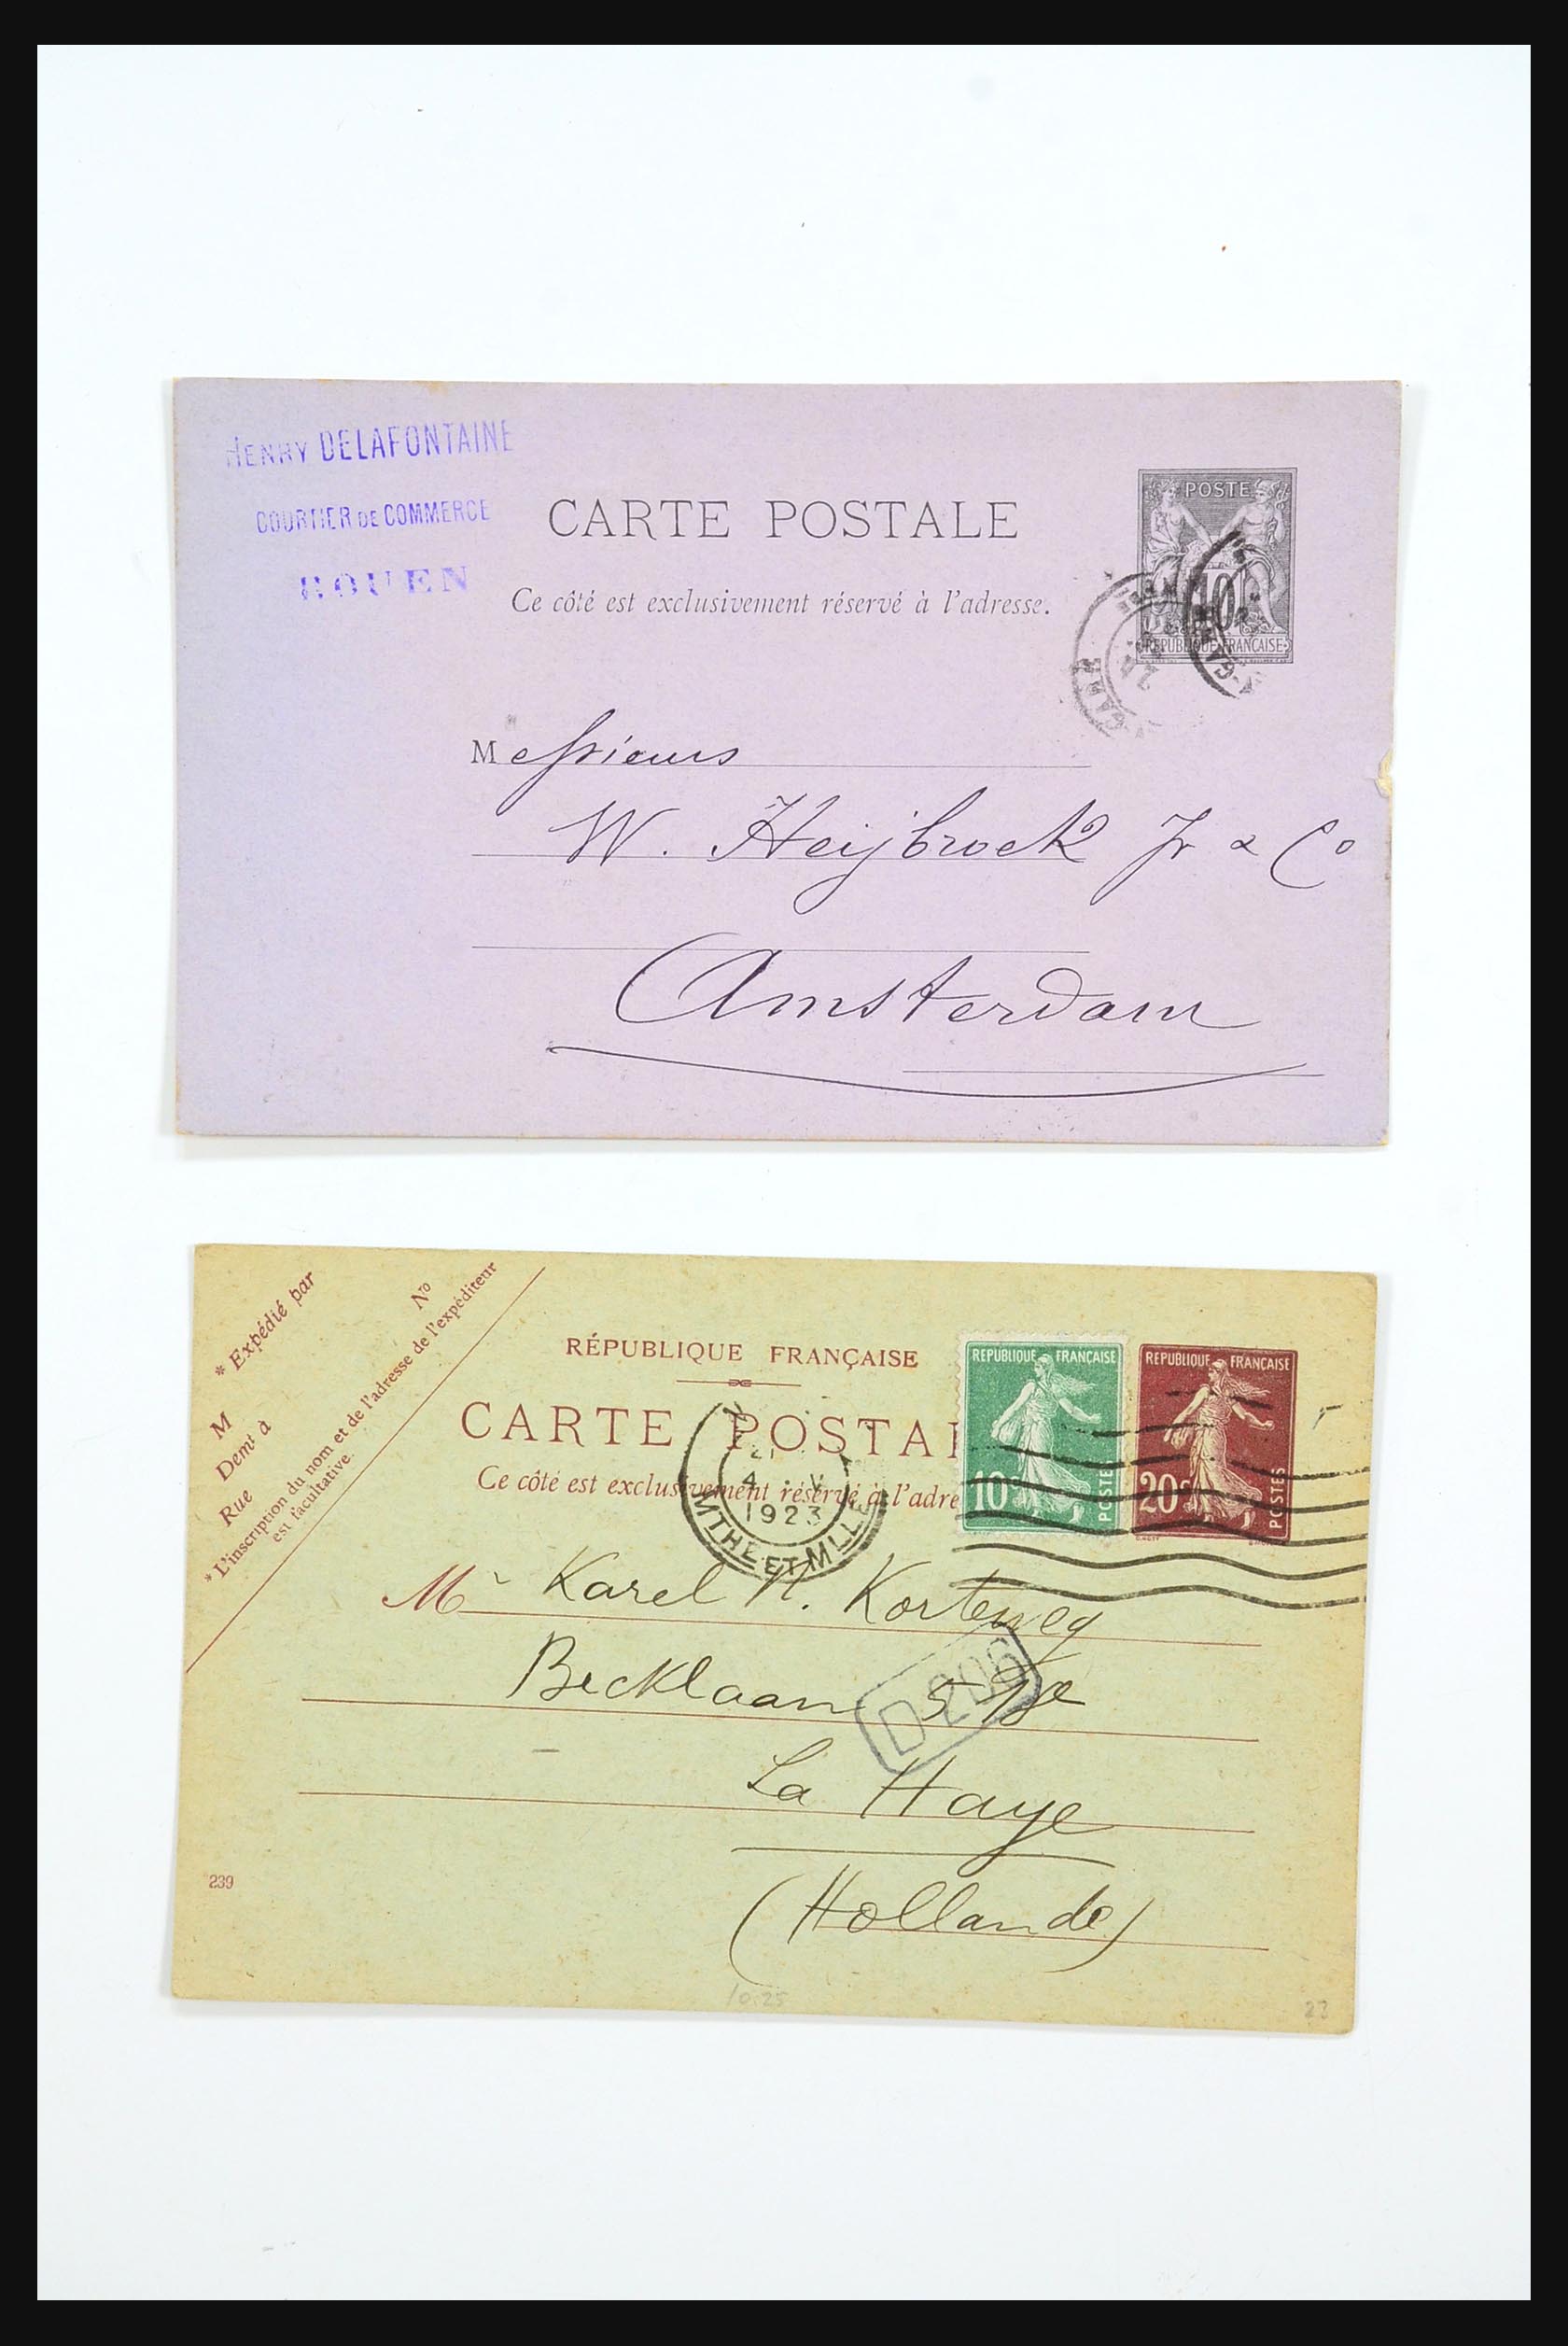 HENRY DELAFONTAINE
COURTIER DE COMMERCE
ROUEN
CARTE POSTALE
Ce côté est exclusivement réservé à l'adresse.
POSTE
10
REPUBLIQUE FRANÇAISE
Messieurs
W. Heijbroek Jr & Co
Amsterdam
* Expédié par
M
Demt à
Rue
No
* L'inscription du nom et de l'adresse de l'expéditeur
est facultative.
RÉPUBLIQUE FRANÇAISE
CARTE POSTAL
Ce côté est exclusivement réservé à l'adre
REPUBLIQUE FRANÇAISE
10c
POSTES
REPUBLIQUE FRANÇAISE
20c
POSTES
21
4 . V
1923
MTHE ET MLLE
Mr Karel N. Korteweg
Becklaan
D 206
La Haye
(Hollande)
239
10.25
23